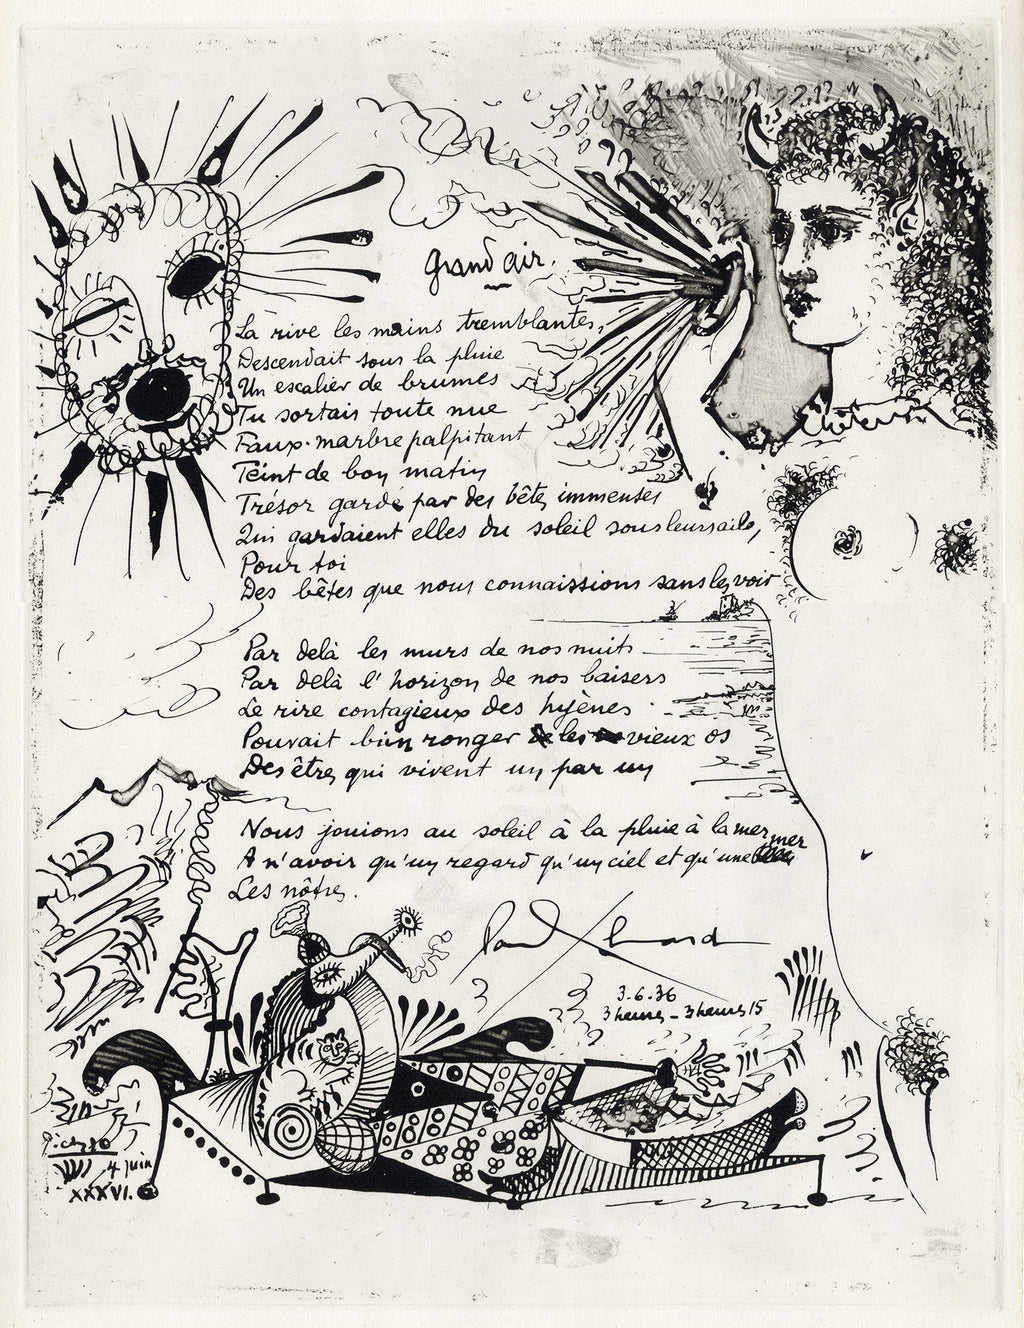 Grand air.
La rive les mains tremblantes,
Descendait sous la pluie
Un escalier de brumes
Tu sortais toute nue
Faux marbre palpitant
Teint de bon matin
Trésor gardé par des bêtes immenses
Qui gardaient elles du soleil sous leurs ailes,
Pour toi
Des bêtes que nous connaissions sans les voir
Par delà les murs de nos nuits
Par delà l'horizon de nos baisers
Le rire contagieux des hyènes
Pouvait bien ronger de les vieux os
Des êtres qui vivent un par un
Nous jouions au soleil à la pluie à la mer mer
A n'avoir qu'un regard qu'un ciel et qu'une
Les nôtres.
Paul Eluard
3.6.36
3 heures - 3 heures 15
Picasso
4 juin
XXXVI.